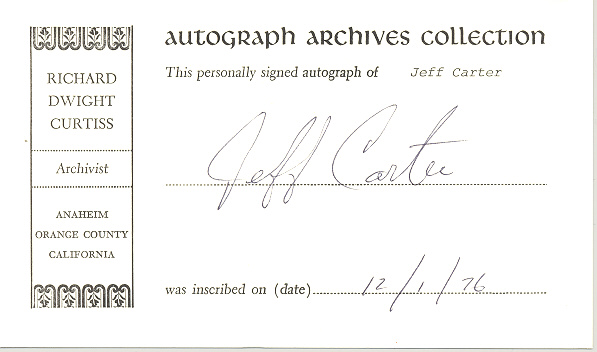 RICHARD
DWIGHT
CURTISS
Archivist
ANAHEIM
ORANGE COUNTY
CALIFORNIA
AUTOGRAPH ARCHIVES COLLECTION
This personally signed autograph of Jeff Carter
Jeff Carter
was inscribed on (date) 12/1/76